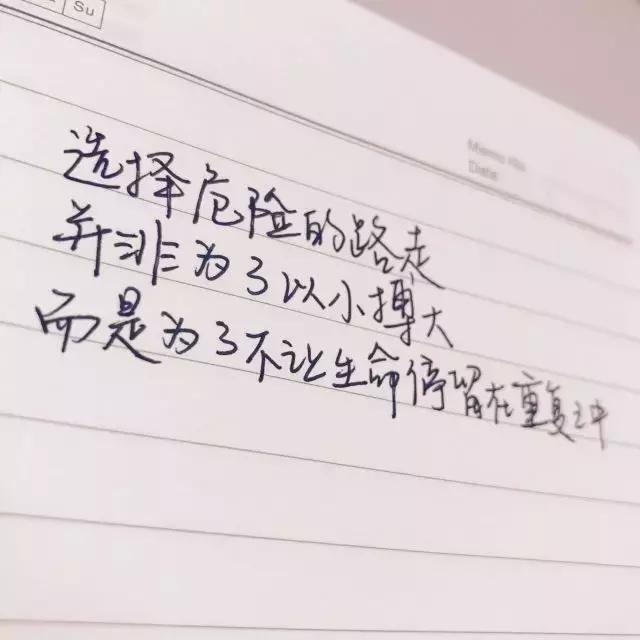 Su
Memo No.
Date
选择危险的路走
并非为了以小搏大
而是为了不让生命停留在重复之中